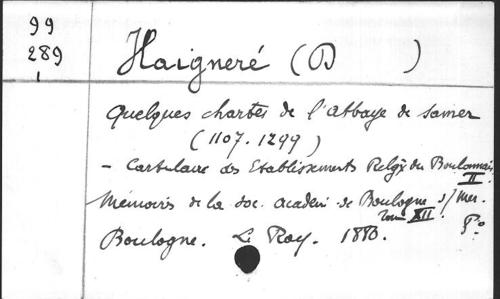 99
289
1
Haigneré (D )
Quelques chartes de l'abbaye de Samer
(1107-1299)
- Cartulaire des Etablissements Religx du Boulonnais
II
Mémoires de la soc. academ. de Boulogne s/ Mer.
Tome XII.
Boulogne. Le Roy. 1880.